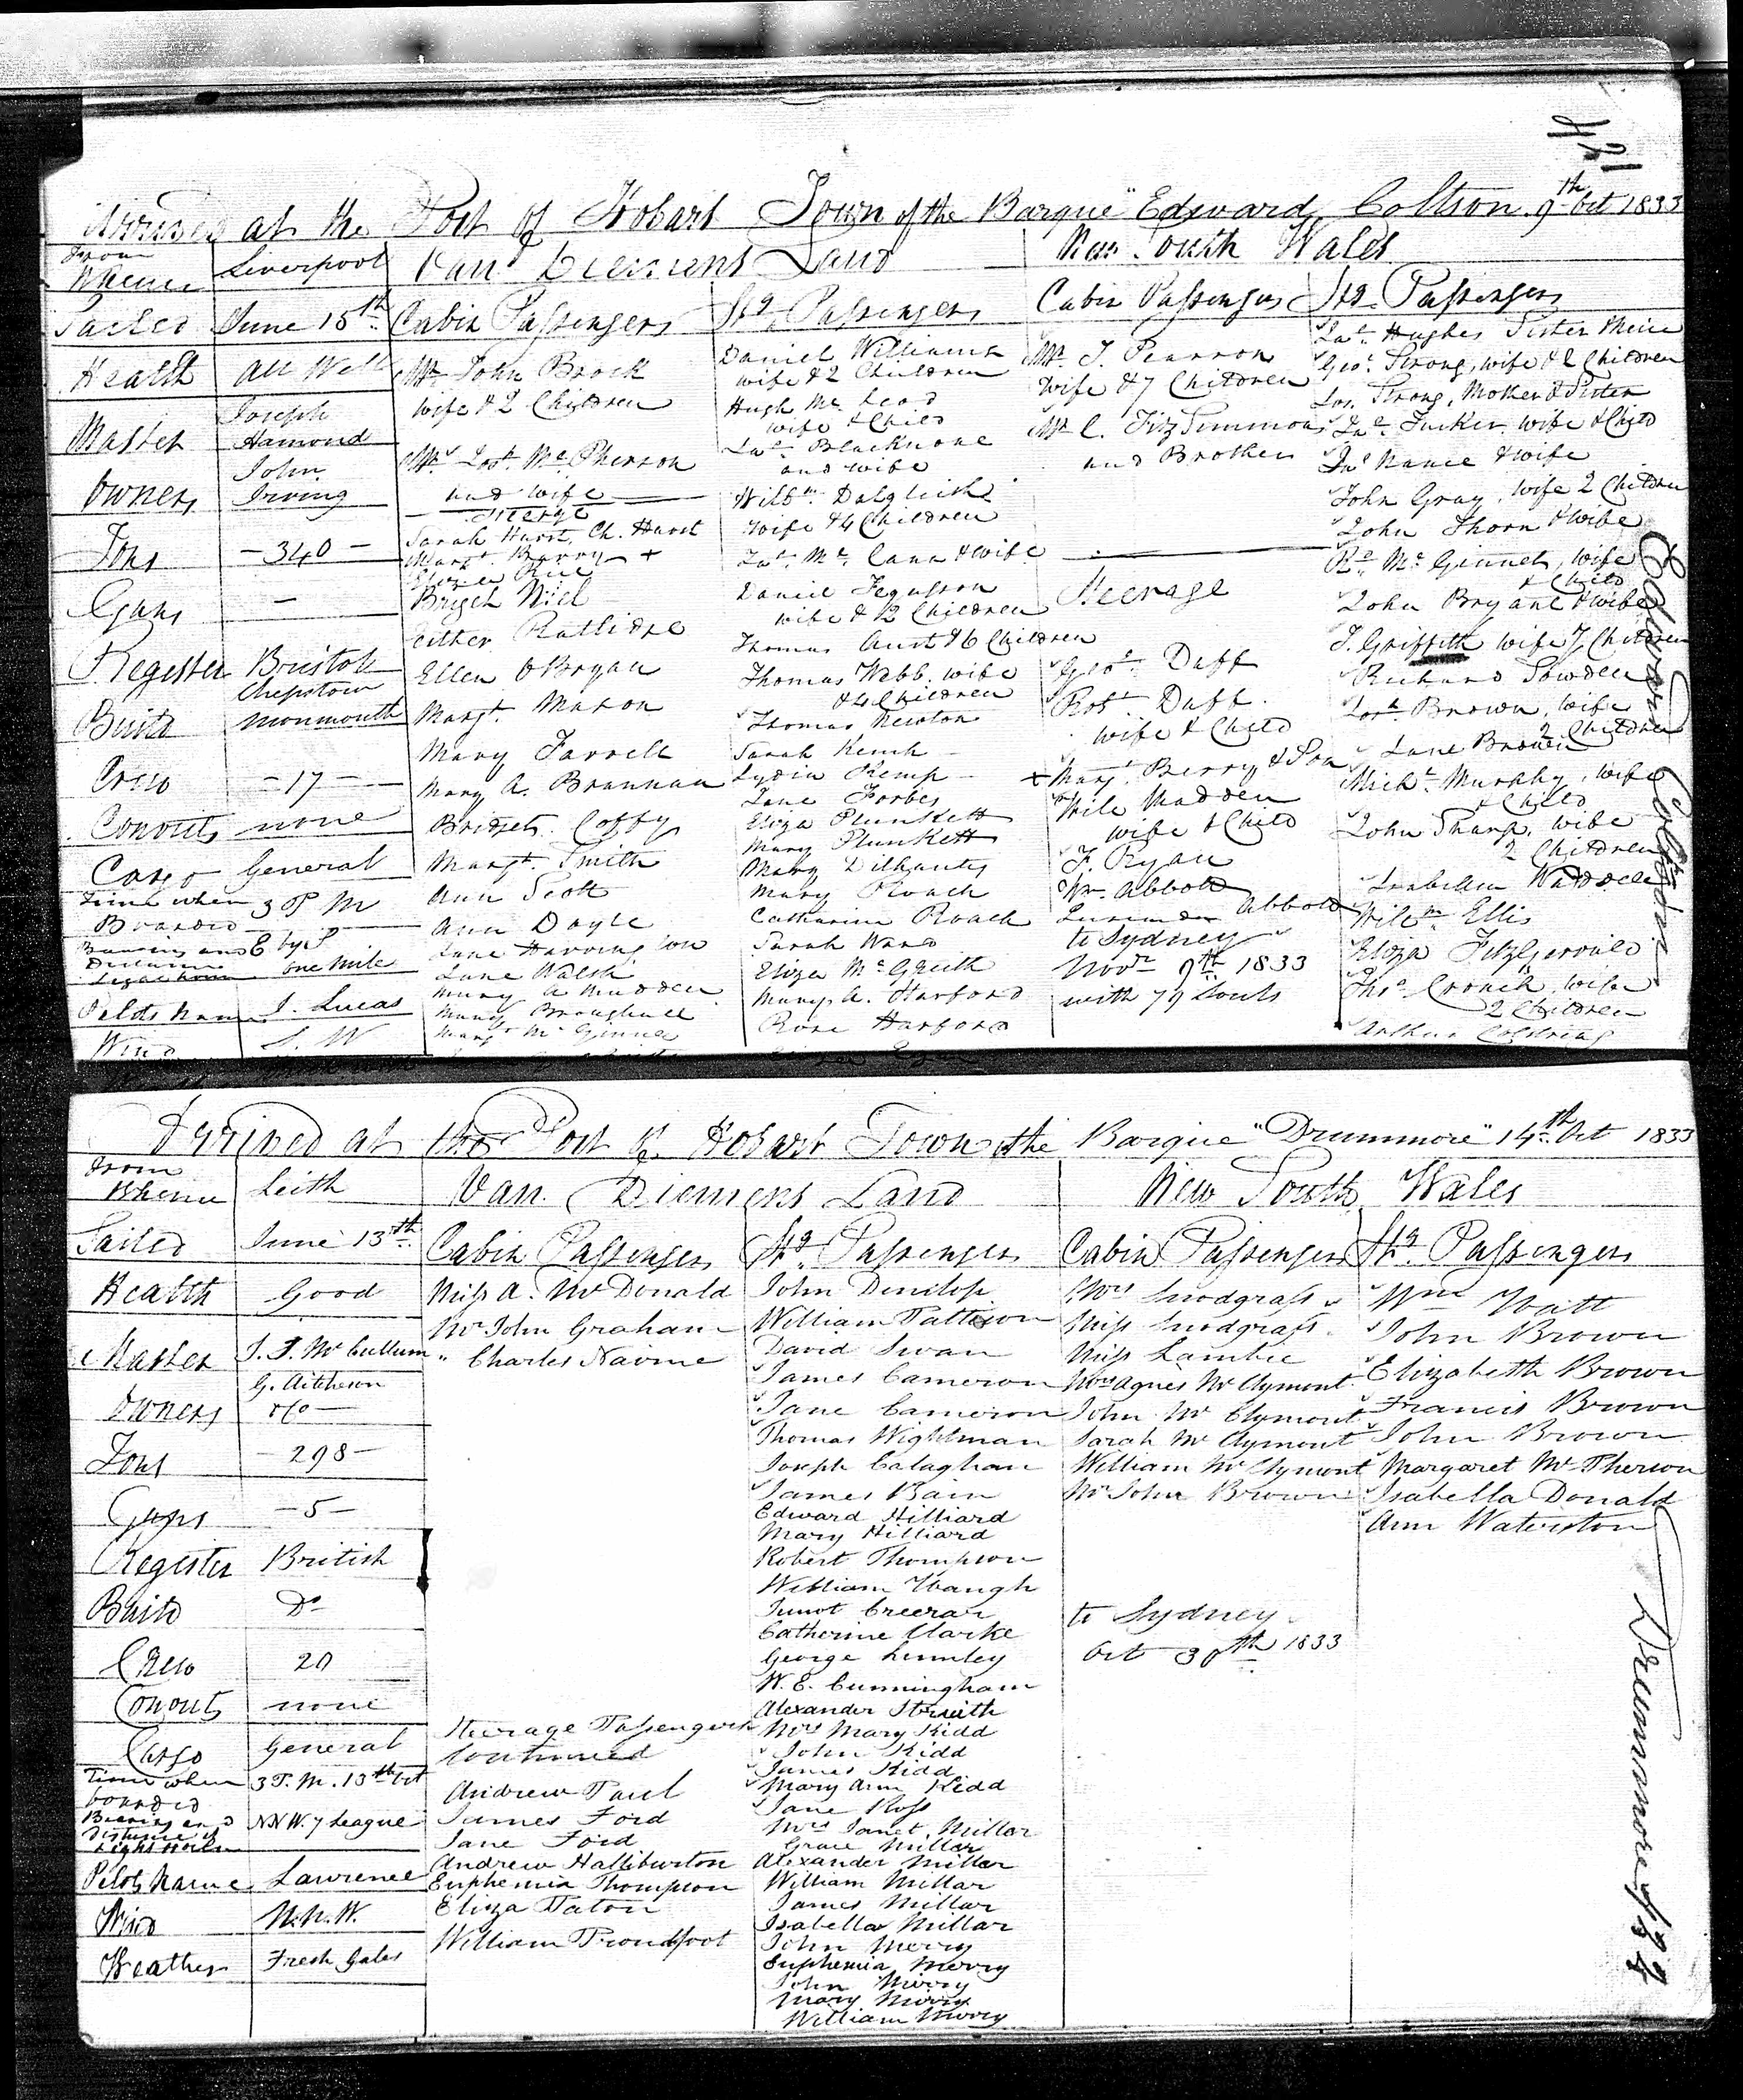 Arrived at the Port of Hobart Town of the Barque "Edward Coltson 9th Oct 1833
From Whence Liverpool
Van Diemens Land
New South Wales
Sailed June 15th
Health All Well
Master Joseph Hamond
Owners John Irving
Tons - 340 -
Guns -
Register Bristol
Build Chepstow Monmouth
Crew - 17 -
Convicts none
Cargo General
Time when Boarded 3 P M
Bearing and Distance E by S one Mile
Pilots Name J. Lucas
Wind S. W
Cabin Passengers
Mr John Brock
wife & 2 Children
Mr Josh. Mc Pherson
and wife
Steerage
Sarah Hurst, Ch. Hurst
Margt. Barry +
Ellen O Bryan
Margt. Mason
Mary Farrell
Mary A. Brannan
Bridget Coffy
Margt. Smith
Ann Scott
Ann Doyle
Jane Harrington
Jane Walsh
Mary A Madden
Margt Mc Ginnes
Stg. Passengers
Daniel Williams
wife & 2 Children
Hugh Mc Leod
wife & Child
and wife
Willm Dalgleish
wife & 4 Children
Jas. Mc Cann & wife
Daniel Fegusson
wife & 12 Children
Thomas Aunt & 6 Children
Thomas Webb, wife
& 4 Children
Thomas Newton
Sarah Kemp
Lydia Kemp
Jane Forbes
Eliza Plunkett
Mary Plunkett
Mary Roach
Catharine Roach
Sarah Ward
Mary A. Harford
Rose Harford
Cabin Passengers
Mr J. Pearson
wife & 7 Children
Mr C. FitzSimmons
and Brother
Steerage
Geo. Duff
Robt. Duff.
wife & Child
+ Margt. Berry & Son
Will Madden
wife & Child
F. Ryan
Wm Abbott
Abbott
to Sydney
Novr 9th 1833
with 79 Souls
Stg. Passengers
Jas. Hughes Sister Niece
Geo. Strong, wife & 2 Children
Jos. Strong, Mother & Sister
Jas. Tucker, wife & Child
Jas Nance & wife
John Gray, wife 2 Children
John Thorn & wife
Rd Mc Ginnes, wife
& Child
John Bryant & wife
J. Griffith wife 7 Children
Richard Sowden
Josh. Brown, wife
2 Children
Jane Brown
Michl. Murphy, wife
& Child
John Sharp, wife
2 Children
Isabella Waddell
Willm Ellis
Eliza Fitzgerald
Thos. Cronch, wife
2 Children
Edward Coltson
Arrived at the Port of Hobart Town of the Barque "Drummore" 14th Oct 1833
From Whence Leith
Van Diemens Land
New South Wales
Sailed June 13th
Health Good
Master J. J. Mc Cullum
Owners G. Aitcheson &c
Tons - 298 -
Guns - 5 -
Register British
Build Do
Crew 20
Convicts none
Cargo General
Time when boarded 3 P.M. 13th Oct
Bearing and Distance of Light House NNW. 7 League
Pilots Name Lawrence
Wind N.N.W.
Weather Fresh Gales
Cabin Passengers
Miss A. Mc Donald
Mr John Graham
" Charles Nairne
Steerage Passengers
Continued
Andrew Paul
James Ford
Jane Ford
Andrew Halliburton
Euphemia Thompson
Eliza Paton
William Proudfoot
Stg. Passengers
John Dunlop
William Pattison
David Swan
James Cameron
Jane Cameron
Thomas Wightman
Joseph Calaghan
James Bain
Edward Hilliard
Mary Hilliard
Robert Thompson
William Waugh
Catherine Clarke
George Lumley
W. E. Cunningham
Mrs Mary Kidd
John Kidd
James Kidd
Mary Ann Kidd
Jane Ross
Mrs Janet Millar
Grace Millar
Alexander Millar
William Millar
James Millar
Isabella Millar
John Merry
Euphemia Merry
John Merry
Mary Merry
William Merry
Cabin Passengers
Mrs Snodgrass
Miss Snodgrass
Miss Lambie
Mrs Agnes Mc Clymont
John Mc Clymont
Sarah Mc Clymont
William Mc Clymont
Mr John Brown
to Sydney
Oct 30th 1833
Stg. Passengers
Wm Watt
John Brown
Elizabeth Brown
Francis Brown
John Brown
Margaret Mc Pherson
Isabella Donald
Ann Waterston
Drummore